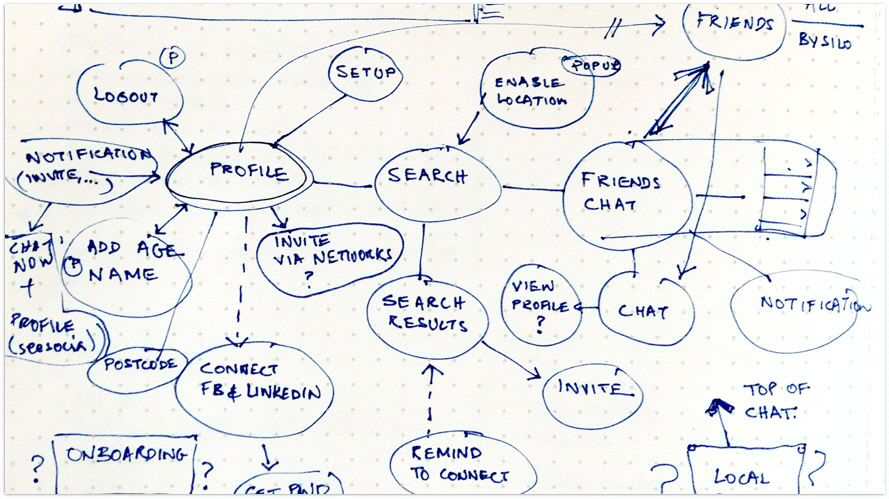 FRIENDS
ALL
BY SILO
P
LOGOUT
SETUP
POPUP
ENABLE
LOCATION
NOTIFICATION
(INVITE,...)
PROFILE
SEARCH
FRIENDS
CHAT
CHAT
NOW
+
PROFILE
(seesocial)
P
ADD AGE
NAME
INVITE
VIA NETWORKS
?
SEARCH
RESULTS
VIEW
PROFILE
?
CHAT
NOTIFICATION
POSTCODE
CONNECT
FB & LINKEDIN
INVITE
TOP OF
CHAT.
? ONBOARDING ?
REMIND
TO CONNECT
? LOCAL ?